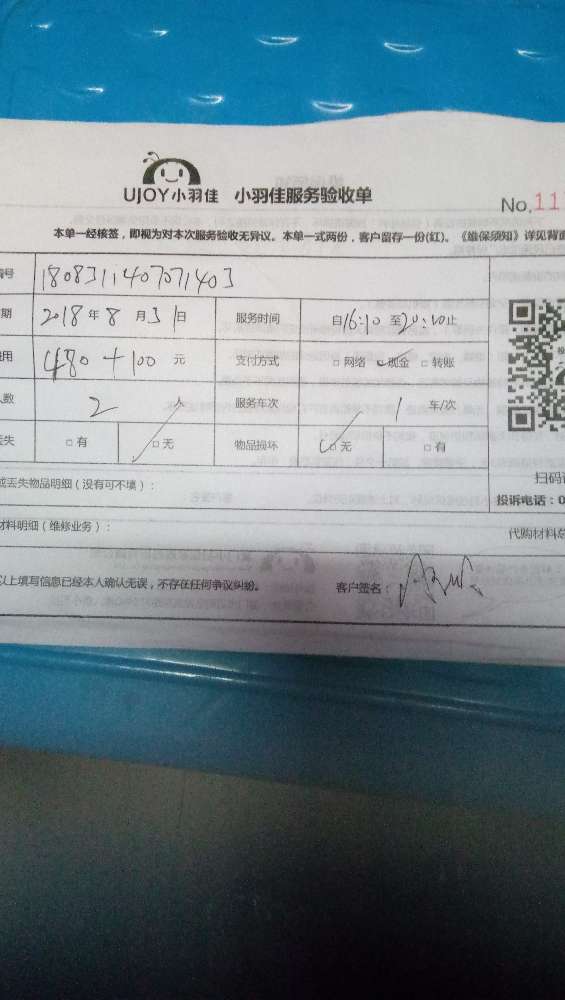 UJOY小羽佳 小羽佳服务验收单
No.11
本单一经核签，即视为对本次服务验收无异议。本单一式两份，客户留存一份(红)。《维保须知》详见背面
编号 1808311407071403
期 2018年8月31日 服务时间 自16:10至20:10止
费用 480+100元 支付方式 □网络 现金 □转账
人数 2人 服务车次 1车/次
丢失 □有 □无 物品损坏 □无 □有
或丢失物品明细（没有可不填）： 扫码
投诉电话：0
材料明细（维修业务）： 代购材料总
以上填写信息已经本人确认无误，不存在任何争议纠纷。 客户签名：